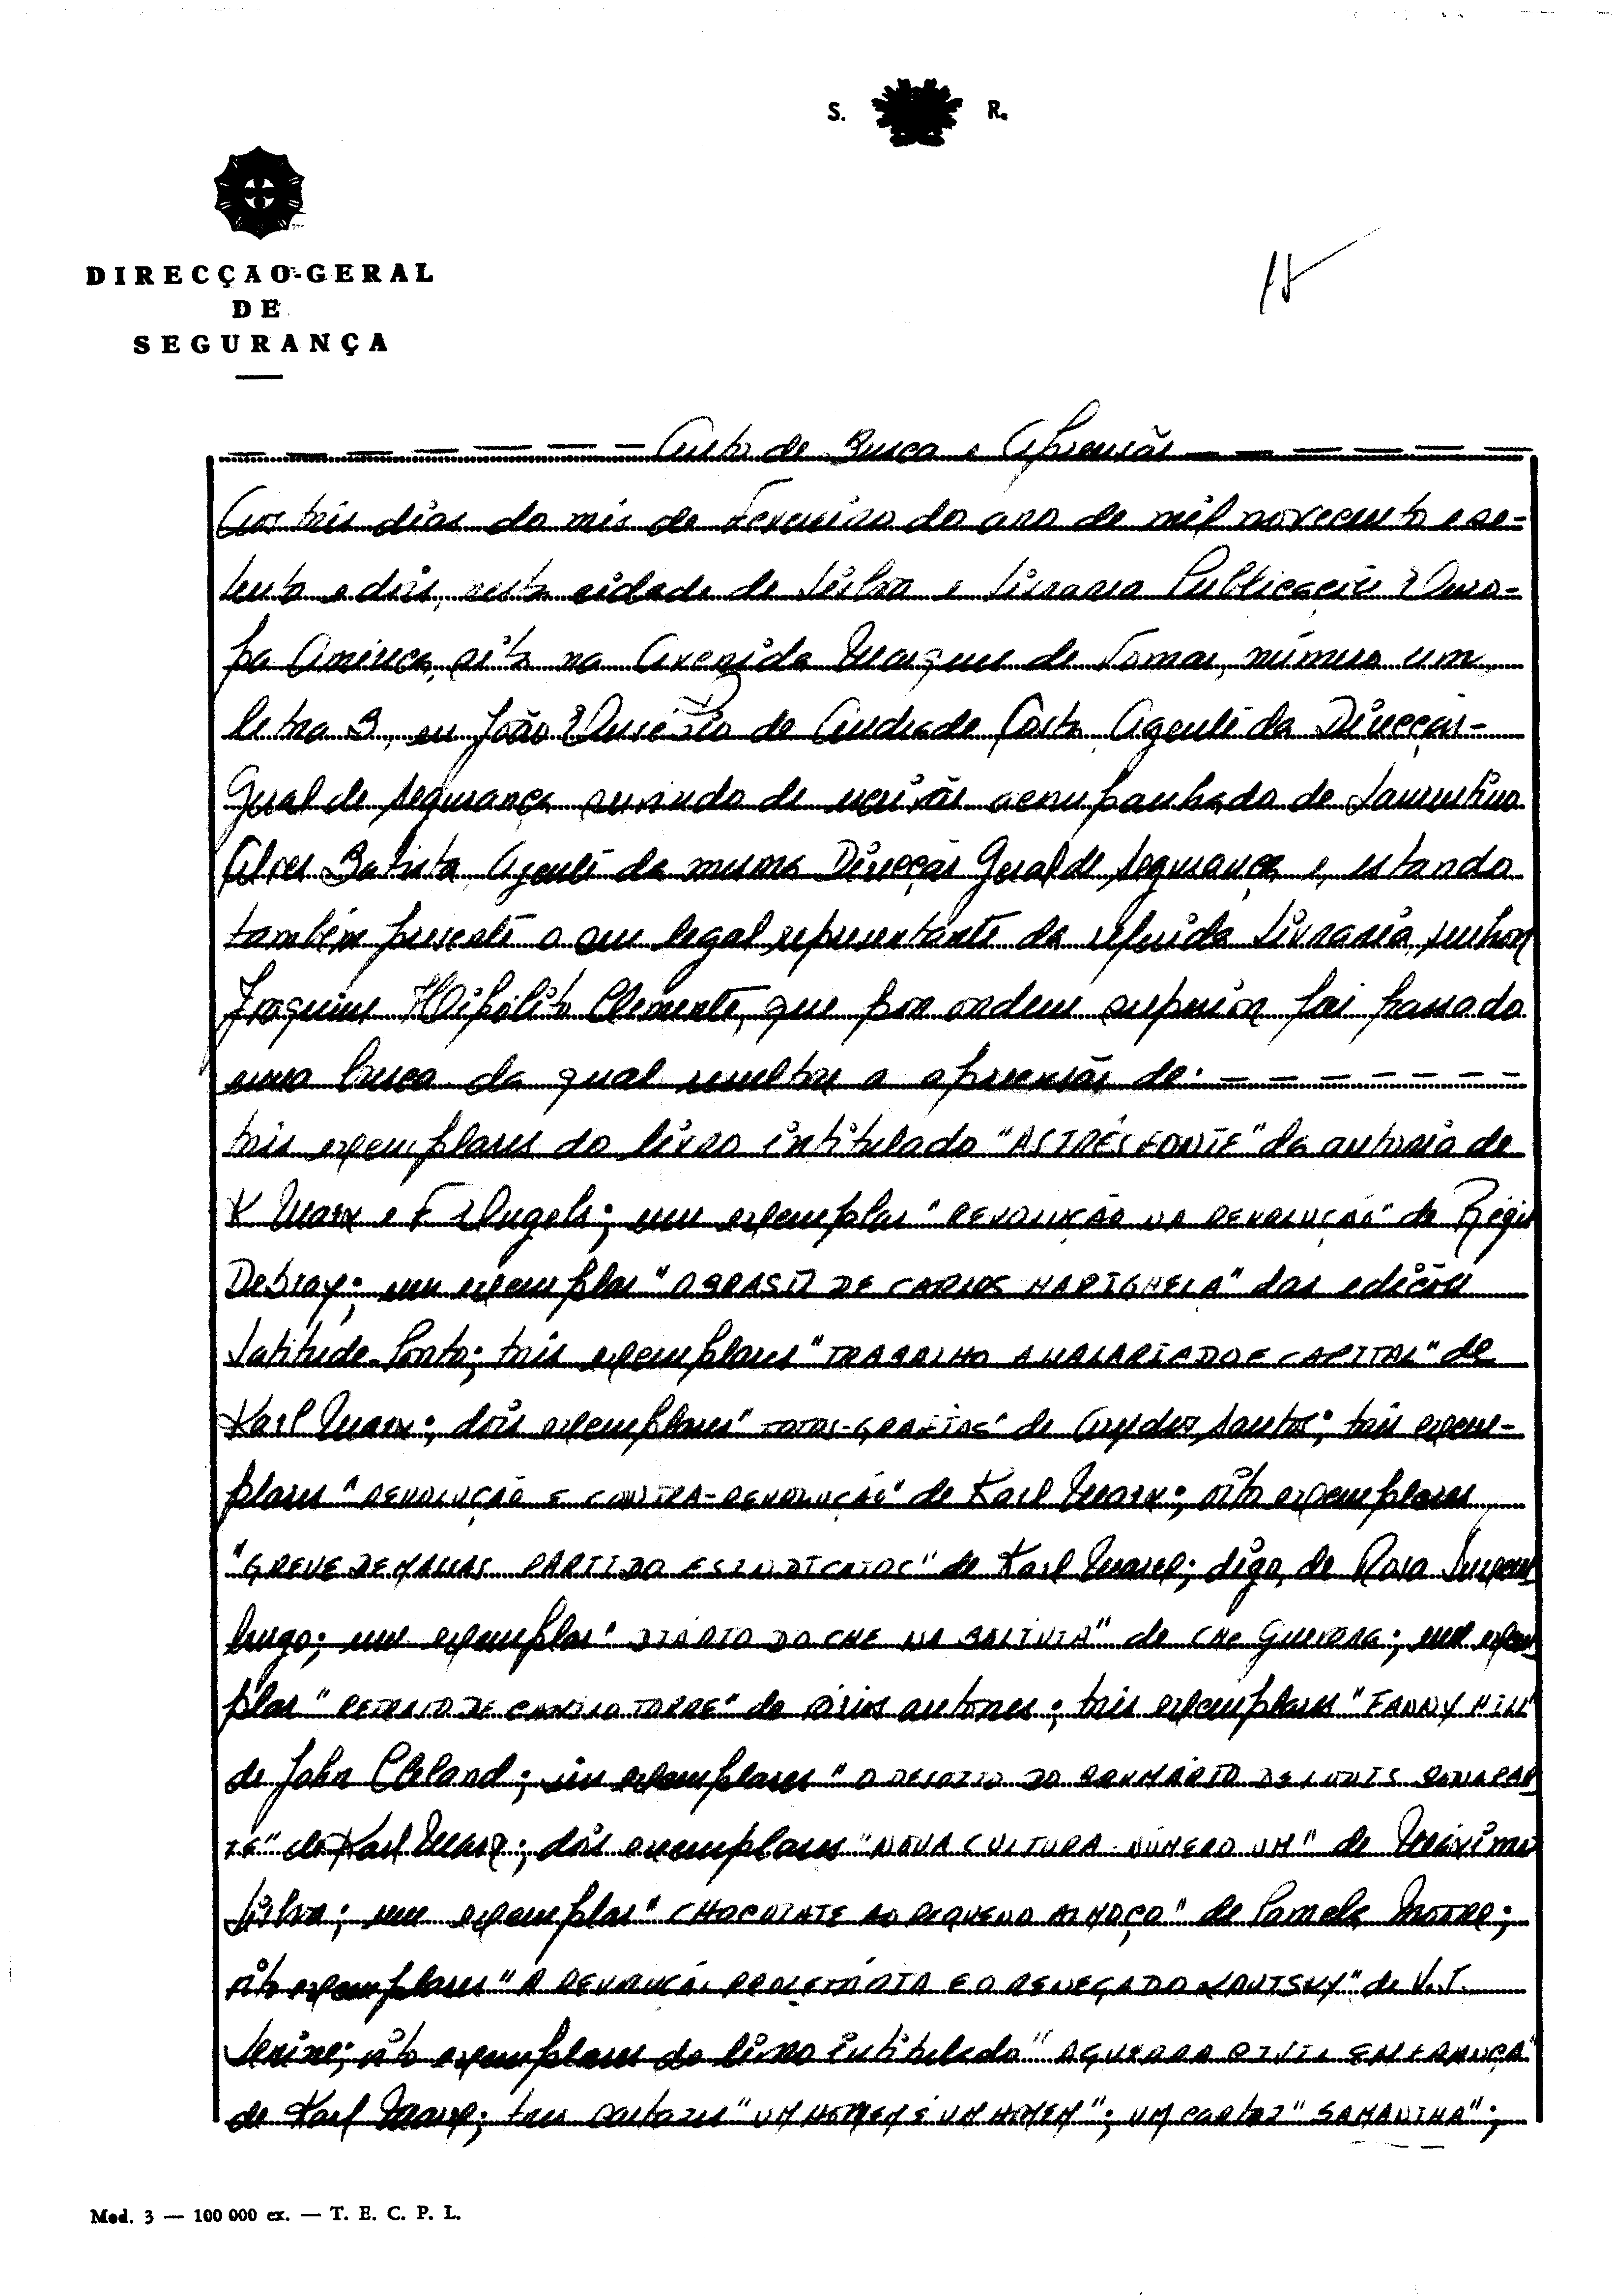 S. R.
DIRECÇAO-GERAL
DE
SEGURANÇA
15
Auto de Busca e Apreensão
Aos três dias do mês de Fevereiro do ano de mil novecento e se-
tenta e dois, nesta cidade de Lisboa e Livraria Publicações Euro-
pa América, sita na Avenida Marques de Tomar, número um
letra B, eu João de Andrade Costa Agente da Direcção-
Geral de Segurança servindo de escrivão acompanhado de Laurentino
Alves Batista, Agente da mesma Direcção Geral de Segurança e, estando
também presente o seu legal representante da referida Livraria, senhor
Joaquim Hipólito Clemente, que por ordem superior foi passado
uma busca da qual resultou a apreensão de:
três exemplares do livro intitulado "AS TRÊS FONTE" da autoria de
K Marx e F. Engels; um exemplar "REVOLUÇÃO NA REVOLUÇÃO" de Régis
Debray; um exemplar "O BRASIL DE CARLOS MARIGHELA" das edições
Latitude-Porto; três exemplares "TRABALHO ASSALARIADO E CAPITAL" de
Karl Marx; dois exemplares de Santos; três exem-
plares "REVOLUÇÃO E CONTRA-REVOLUÇÃO" de Karl Marx; oito exemplares
"GREVE DE MASSAS PARTIDO E SINDICATOS" de Karl Marx; digo, de Rosa Luxem
burgo; um exemplar "DIÁRIO DO CHE NA BOLIVIA" de CHE GUEVARA; um exem
plar "RETRATO DE CAMILO TORRE" de vários autores; três exemplares "FANNY HILL"
de John Cleland; um exemplares "O DEZOITO DO BRUMÁRIO DE LOUIS BONAPAR
TE" de Karl Marx; dois exemplares "NOVA CULTURA - NÚMERO UM" de Máximo
Lisboa; um exemplar "CHOCOLATE AO PEQUENO ALMOÇO" de Pamela MOORE;
oito exemplares "A REVOLUÇÃO PROLETÁRIA E O RENEGADO KAUTSKY" de V.I.
Lenine; oito exemplares do livro intitulado "A GUERRA CIVIL EM FRANÇA"
de Karl Marx; tres cartazes "UM HOMEM É UM HOMEM"; UM cartaz "SAMANTHA";
Mod. 3 — 100 000 ex. — T. E. C. P. L.